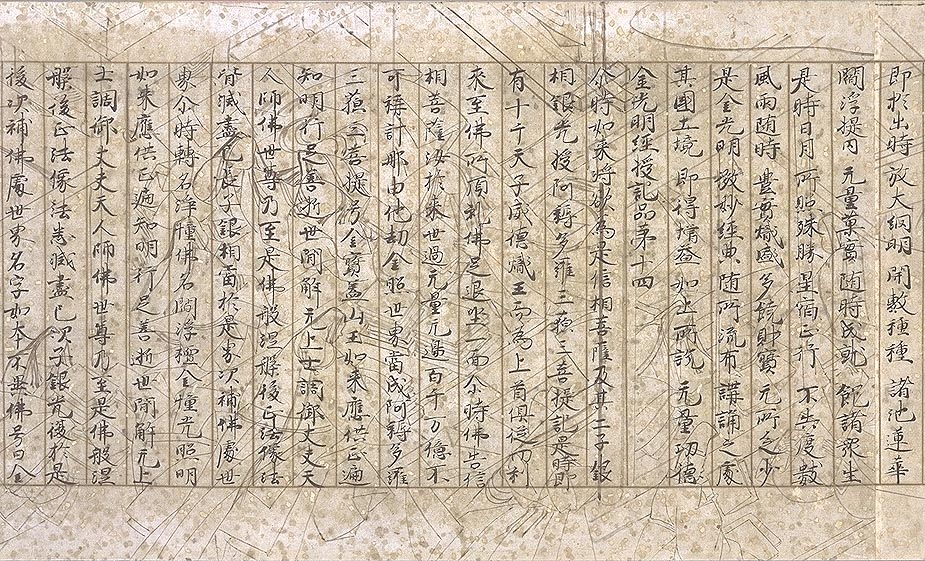 即於出時 放大網明 開敷種種 諸池蓮華
閻浮提内 无量菓實 随時成就 飽諸眾生
是時日月 所照殊勝 星宿正行 不失度數
風雨随時 豊實熾盛 多饒財寶 无所乏少
是金光明 微妙經典 随所流布 講誦之處
其國土境 即得增益 如上所說 无量功德
金光明經授記品第十四
尒時如来將欲為是信相菩薩及其二子銀
相銀光授阿耨多羅三藐三菩提記是時即
有十千天子威德熾王而為上首俱從忉利
来至佛所頂礼佛足退坐一面尒時佛告信
相菩薩汝於来世過无量无邊百千万億不
可稱計那由他劫金照世界當成阿耨多羅
三藐三菩提号金寶盖山王如来應供正遍
知明行足善逝世間解无上士調御丈夫天
人師佛世尊乃至是佛般涅槃後正法像法
皆滅盡已長子銀相當於是界次補佛處世
界尒時轉名淨幢佛名閻浮檀金幢光照明
如来應供正遍知明行足善逝世間解无上
士調御丈夫天人師佛世尊乃至是佛般涅
槃後正法像法悉滅盡已次子銀光復於是
後次補佛處世界名字如本不異佛号曰金